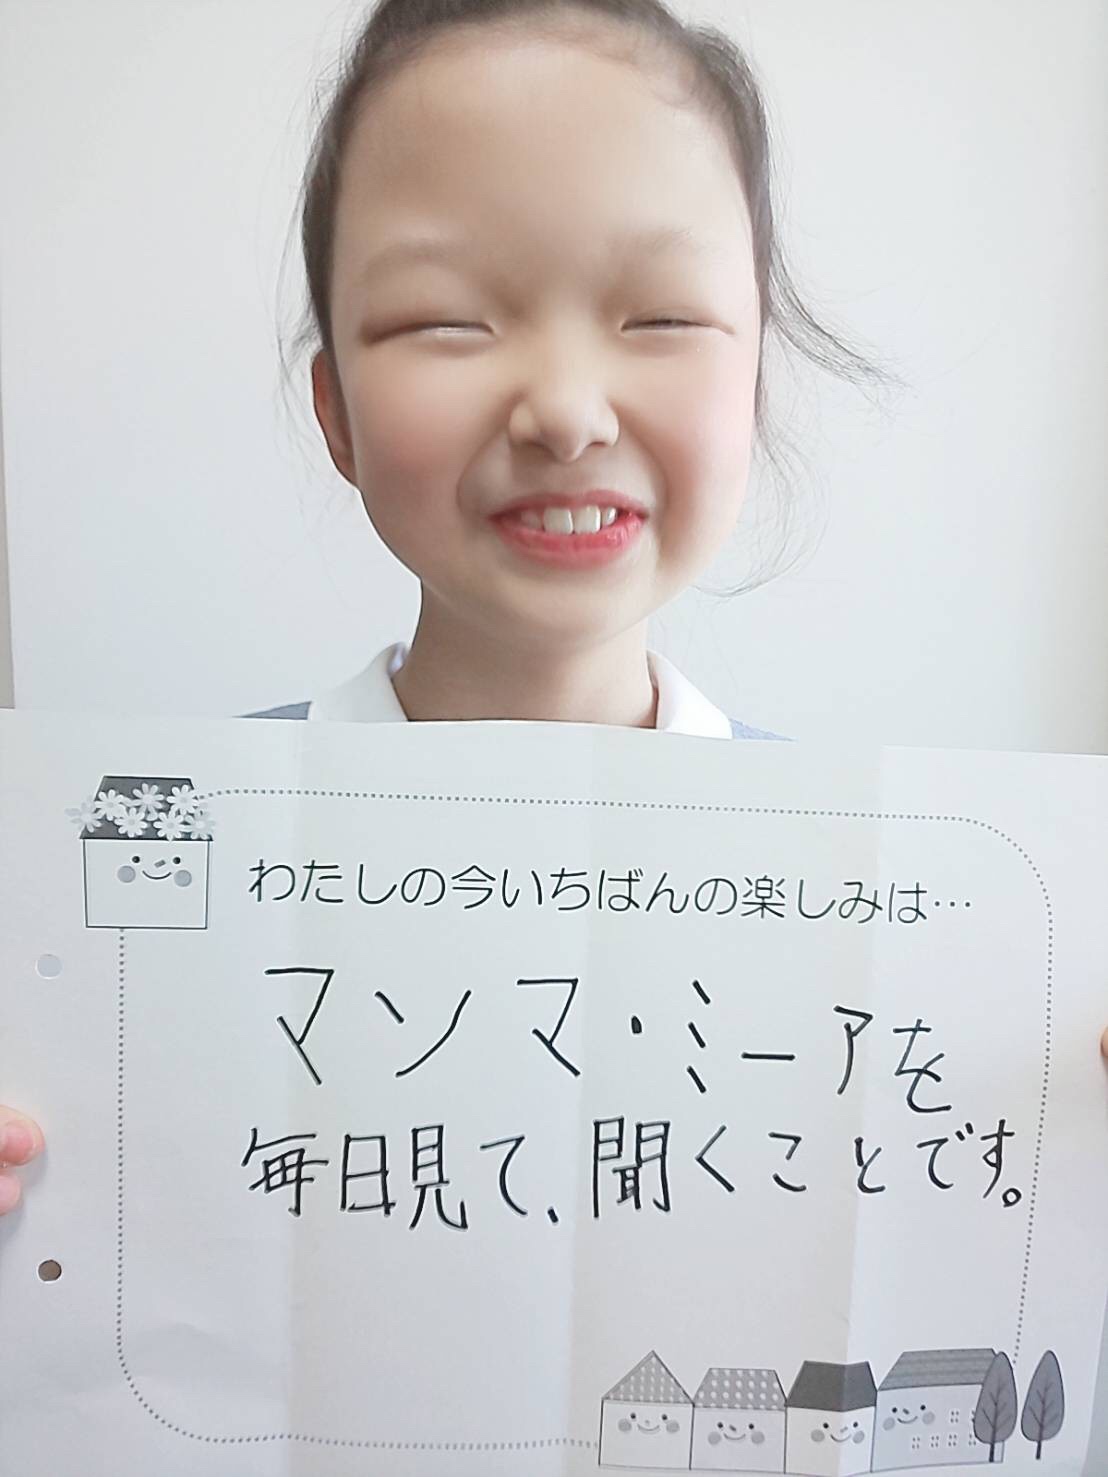 わたしの今いちばんの楽しみは…
マンマ・ミーアを
毎日見て、聞くことです。